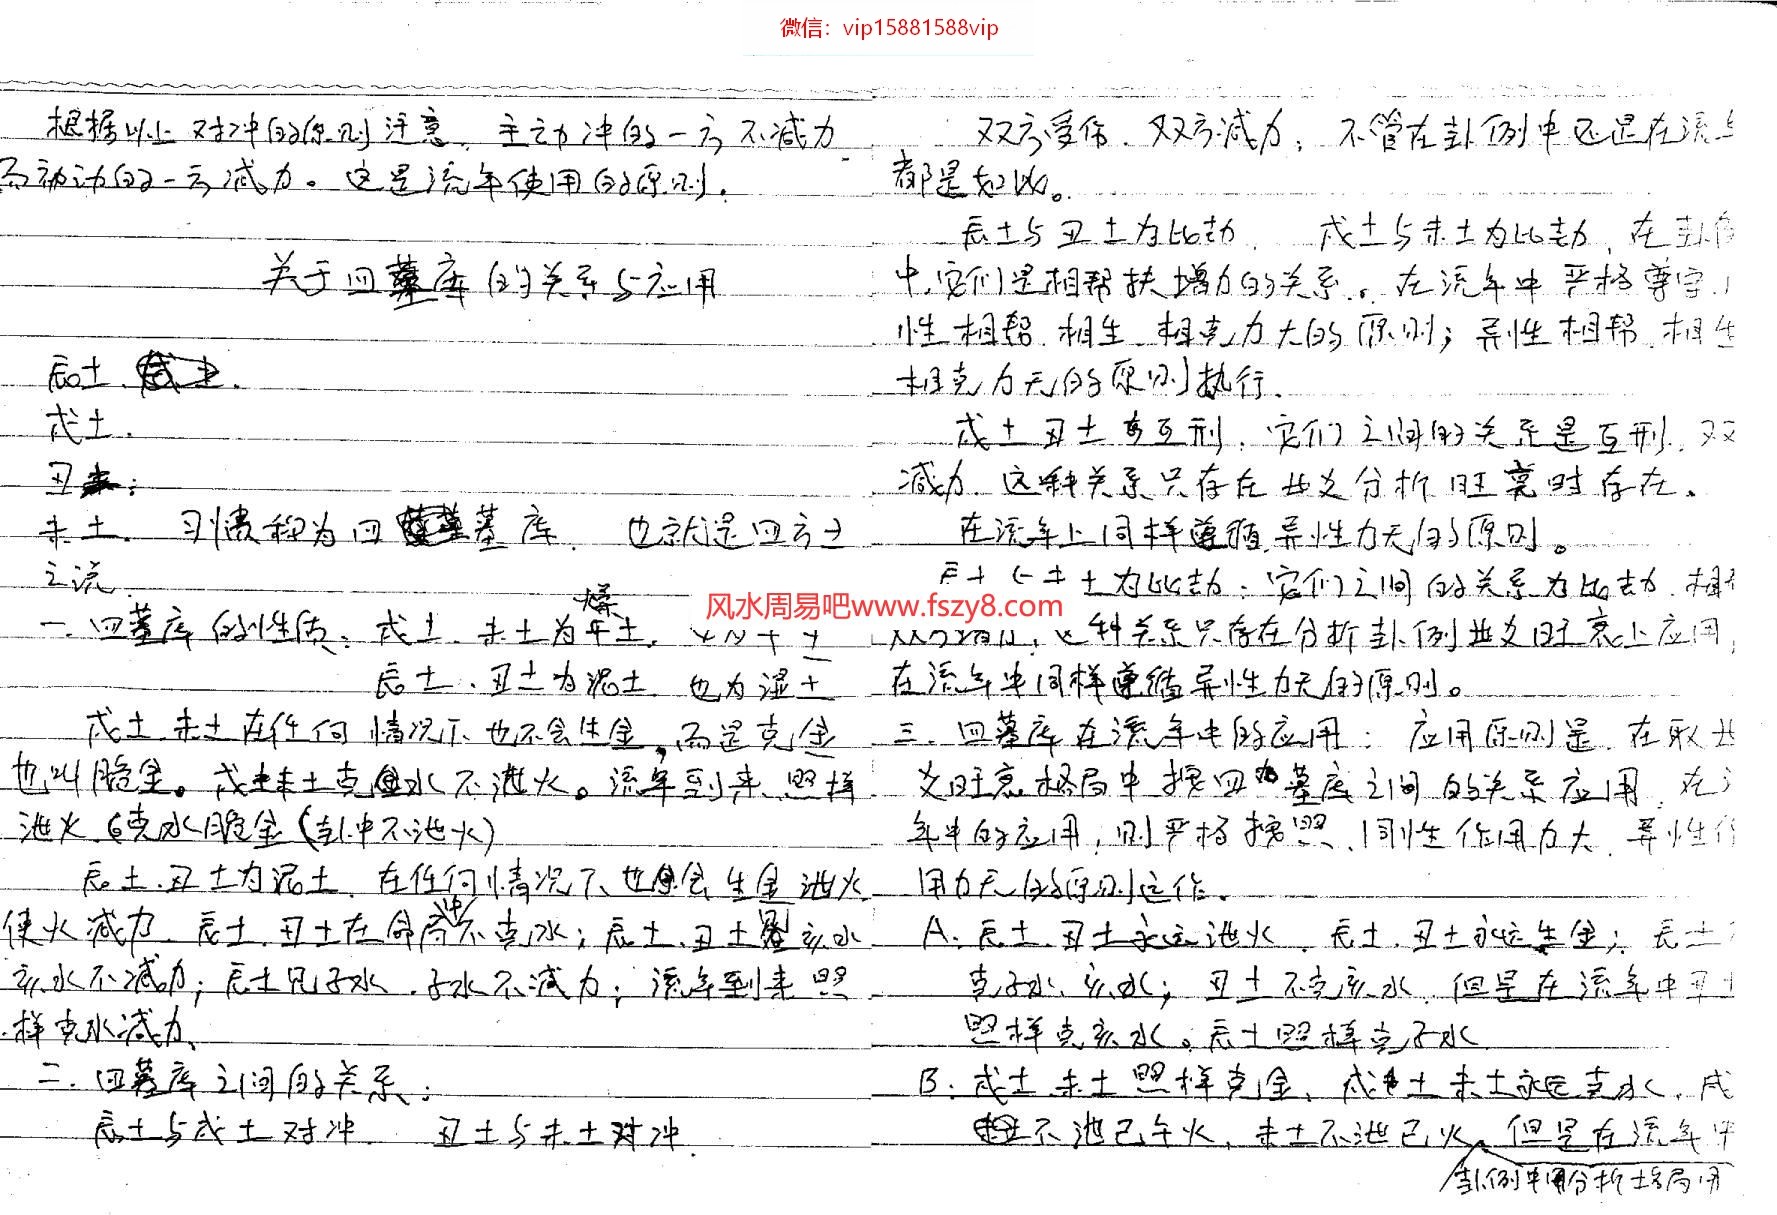 微信：vip15881588vip
根据以上对冲的原则注意，主动冲的一方不减力
而被动的一方减力。这是流年使用的原则.
关于四墓库的关系与应用
辰土.
戌土.
丑
未土. 习惯称为四墓库，也就是四方土
之说.
一. 四墓库的性质：戌土. 未土为干土.
燥
辰土. 丑土为泥土 也为湿土
戌土.未土在任何情况下也不会生金，而是克金
也叫脆金。戌土未土克水不泄火。流年到来照样
泄火. 克水脆金(卦中不泄火)
辰土.丑土为泥土. 在任何情况下也会生金泄火
使火减力. 辰土.丑土在命局中不克水；辰土.丑土见亥水
亥水不减力；辰土见子水.子水不减力；流年到来照
样克水减力、
二. 四墓库之间的关系：
辰土与戌土对冲 丑土与未土对冲.
风水周易吧www.fszy8.com
双方受伤、双方减力；不管在卦例中还是在流年
都是如此。
辰土与丑土为比劫. 戌土与未土为比劫，在卦例
中，它们是相帮扶增力的关系。在流年中严格尊守
性相帮.相生.相克力大的原则；异性相帮.相生
相克力无的原则执行.
戌土丑土为互刑，它们之间的关系是互刑，双
减力.这种关系只存在些支分析旺衰时存在.
在流年上同样遵循异性力无的原则。
土为比劫；它们之间的关系为比劫.相
这种关系只存在分析卦例些支旺衰上应用，
在流年中同样遵循异性力无的原则。
三. 四墓库在流年中的应用：应用原则是.在取
支旺衰格局中按四墓库之间的关系应用.在
年中的应用，则严格按照.同性作用力大.异性作
用力无的原则运作.
A. 辰土.丑土永远泄火，辰土.丑土永远生金；辰土
克子水、亥水；丑土不克亥水.但是在流年中丑土
照样克亥水。辰土照样克子水
B. 戌土.未土照样克金、戌土未土永远克水，戌
不泄巳午火，未土不泄巳火，但是在流年中
卦例中用分析格局用